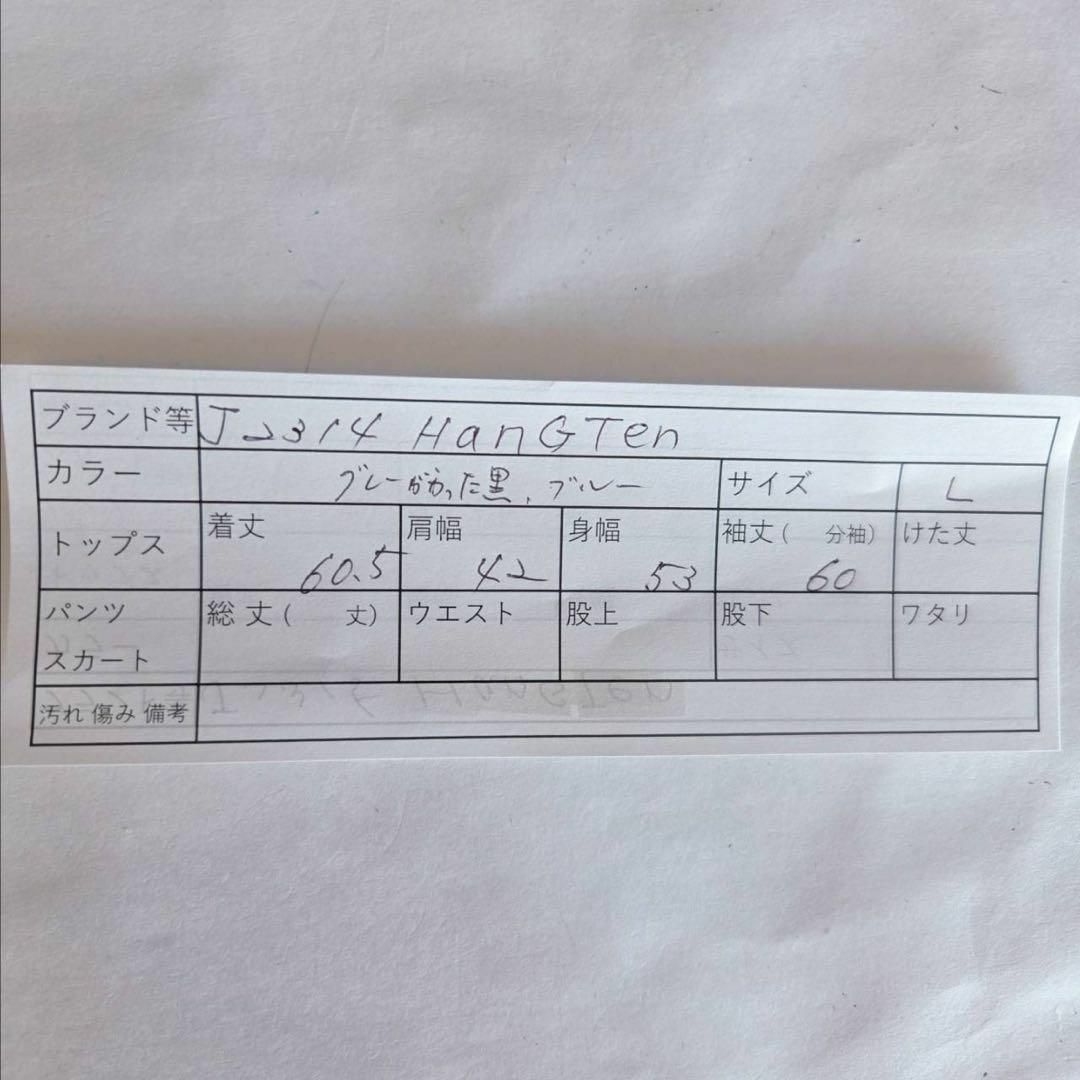 ブランド等 J2314 HanGTen
カラー グレーがかった黒、ブルー サイズ L
トップス 着丈 60.5 肩幅 42 身幅 53 袖丈( 分袖) 60 けた丈
パンツ 総丈( 丈) ウエスト 股上 股下 ワタリ
スカート
汚れ 傷み 備考